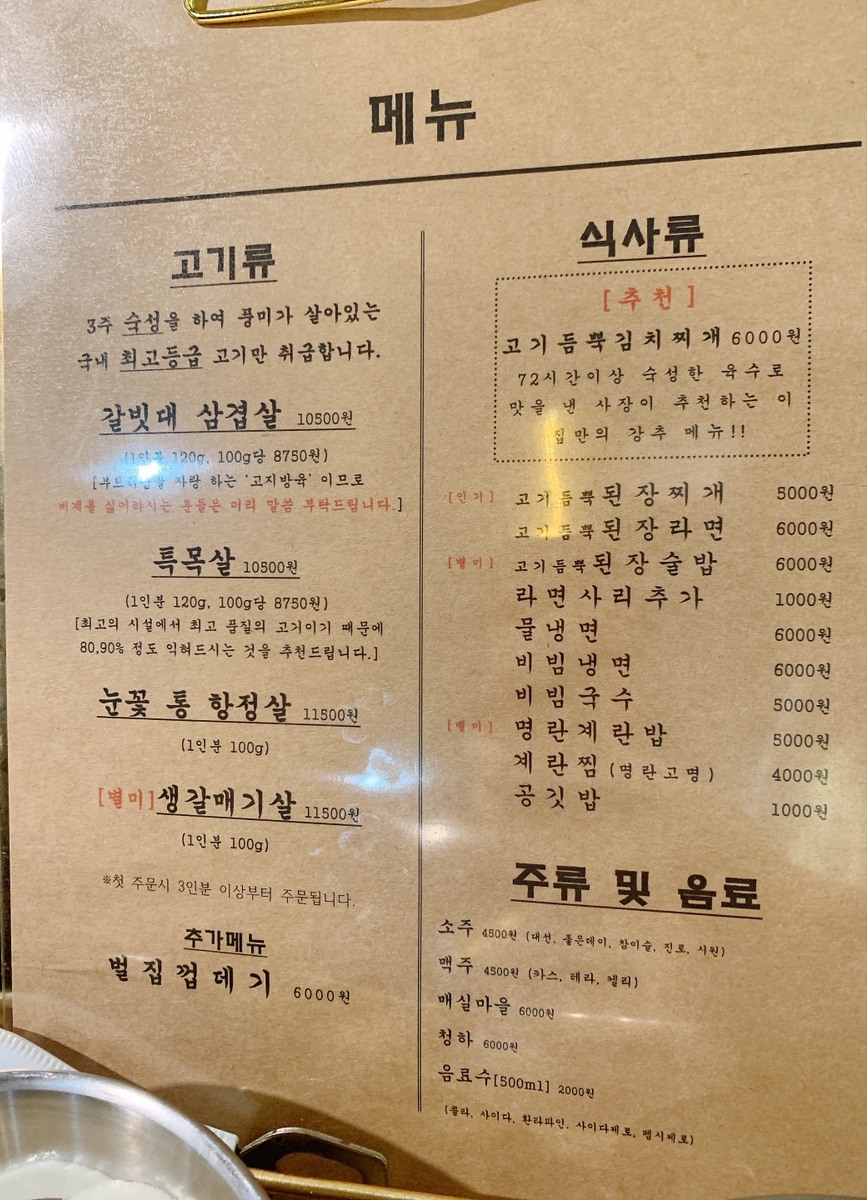 메뉴
고기류
3주 숙성을 하여 풍미가 살아있는
국내 최고등급 고기만 취급합니다.
갈빗대 삼겹살 10500원
(1인분 120g, 100g당 8750원)
자랑 하는 '고지방육' 이므로
비계를 싫어하시는 분들은 미리 말씀 부탁드립니다.]
특목살 10500원
(1인분 120g, 100g당 8750원)
[최고의 시설에서 최고 품질의 고거이기 때문에
80,90% 정도 익혀드시는 것을 추천드립니다.]
눈꽃 통 항정살 11500원
(1인분 100g)
[별미]생갈매기살 11500원
(1인분 100g)
※첫 주문시 3인분 이상부터 주문됩니다.
추가메뉴
벌집껍데기 6000원
식사류
[추천]
고기듬뿍김치찌개 6000원
72시간이상 숙성한 육수로
맛을 낸 사장이 추천하는 이
집만의 강추 메뉴!!
[인기] 고기듬뿍된장찌개 5000원
고기듬뿍된장라면 6000원
[별미] 고기듬뿍된장술밥 6000원
라면사리추가 1000원
물냉면 6000원
비빔냉면 6000원
비빔국수 5000원
[별미] 명란계란밥 5000원
계란찜(명란고명) 4000원
공깃밥 1000원
주류 및 음료
소주 4500원 (대선, 좋은데이, 참이슬, 진로, 시원)
맥주 4500원 (카스, 테라, 켈리)
매실마을 6000원
청하 6000원
음료수[500ml] 2000원
(콜라, 사이다, 환타파인, 사이다제로, 펩시제로)